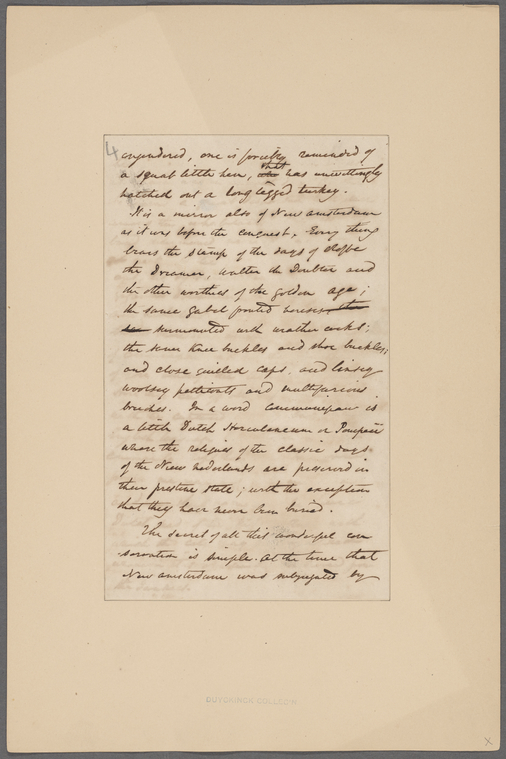 4
engendered, one is forcibly reminded of
a squat little hen, that has unwittingly
hatched out a long legged turkey.
It is a mirror also of New Amsterdam
as it was before the conquest. Every thing
bears the stamp of the days of Oloffe
the Dreamer, Walter the Doubter and
the other worthies of the golden age;
the same gabel fronted houses
surmounted with weather cocks;
the same knee buckles and shoe buckles;
and close quilled caps, and linsey
woolsey petticoats and multifarious
breeches. In a word Communipaw is
a little Dutch Herculaneum or Pompeii
where the reliques of the classic days
of the New Nederlands are preserved in
their pristine state; with the exception
that they have never been buried.
The secret of all this wonderful con
servation is simple. At the time that
New Amsterdam was subjugated by
DUYCKINCK COLLEC'N
x